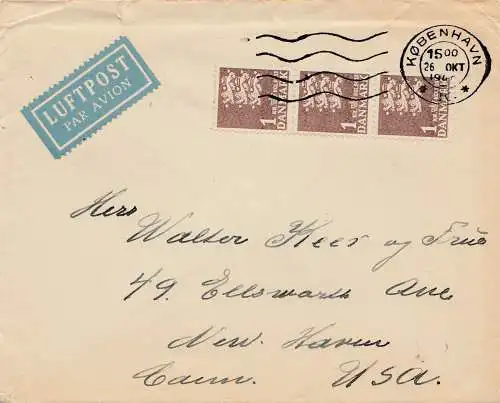 LUFTPOST
PAR AVION
KØBENHAVN
15 00
26 OKT
1 DANMARK
1 DANMARK
1 DANMARK
Herr
Walter Keer og Frue
49 Ellsworth Ave
New. Haven
Conn. USA.